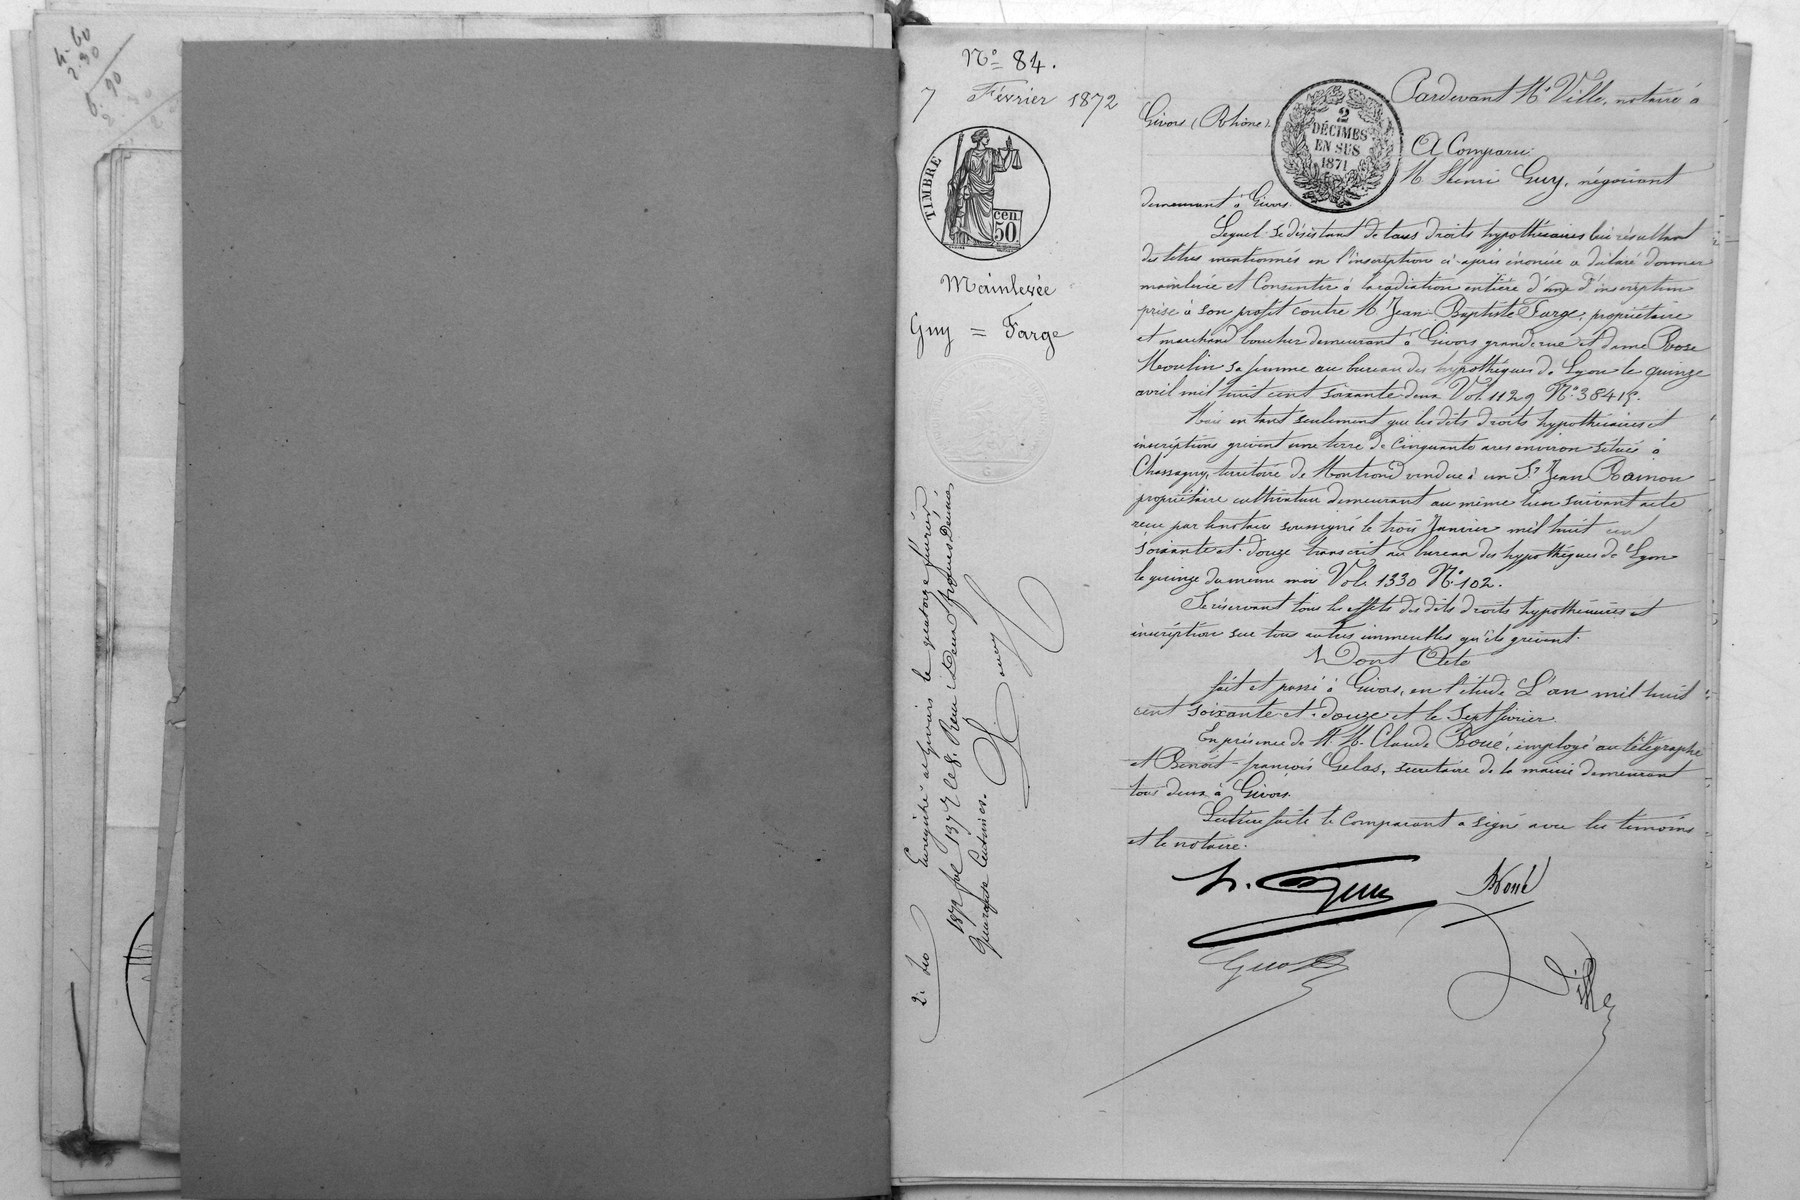 4.60
2.30
6.90
Nº 84.
7 Février 1872
TIMBRE
cen.
50
Mainlevée
Guy = Farge
2 DÉCIMES EN SUS 1871
Pardevant Me Ville, notaire à
Givors (Rhône).
A Comparu:
M. Henri Guy, négociant
demeurant à Givors.
Lequel se désistant de tous droits hypothécaires lui résultant
des titres mentionnés en l'inscription ci-après énoncée a déclaré donner
mainlevée et Consentir à la radiation entière d'une d'inscription
prise à son profit contre M. Jean Baptiste Farge, propriétaire
et marchand boucher demeurant à Givors grande rue et dame Rose
Moulin sa femme au bureau des hypothèques de Lyon le quinze
avril mil huit cent soixante deux Vol. 1129 Nº
Mais en tant seulement que les dits droits hypothécaires et
inscriptions grèvent une terre de Cinquante ares environ située à
Chassagny, territoire de Montrond vendue à un Sr Jean
propriétaire cultivateur demeurant au même lieu suivant acte
reçu par le notaire soussigné le trois Janvier mil huit cent
soixante et douze transcrit au bureau des hypothèques de Lyon
le quinze du même mois Vol. 1330 Nº 102.
Se réservant tous les effets des dits droits hypothécaires et
inscription sur tous autres immeubles qu'ils grèvent.
Dont Acte
fait et passé à Givors, en l'étude L'an mil huit
cent soixante et douze et le sept février.
En présence de M. M. Claude Boué, employé au télégraphe
et Benoît-françois Gelas, secrétaire de la mairie demeurant
tous deux à Givors.
Lecture faite le Comparant a signé avec les témoins
et le notaire.
h. Guy
Boué
Ville
Enregistré à Givors le quatorze février
1872 fol 137 Reçu Deux francs Décimes
quarante Centimes.